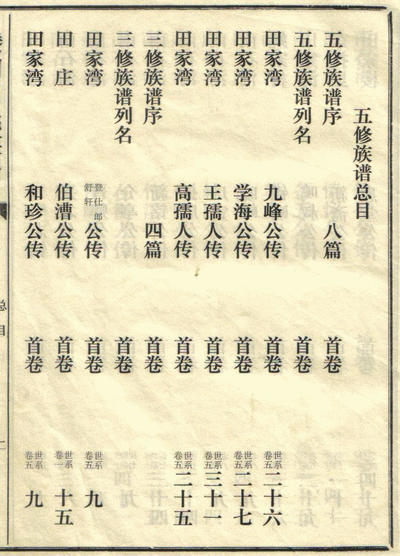 五修族谱总目
五修族谱序 八篇 首卷
五修族谱列名 首卷
田家湾 九峰公传 首卷 世系卷五 二十六
田家湾 学海公传 首卷 世系卷五 二十七
田家湾 王孺人传 首卷 世系卷五 三十一
田家湾 高孺人传 首卷 世系卷五 二十五
三修族谱序 四篇 首卷
三修族谱列名 首卷
田家湾 登仕郎舒轩公传 首卷 世系卷五 九
田庄 伯漕公传 首卷 世系卷一 十五
田家湾 和珍公传 首卷 世系卷五 九
总目